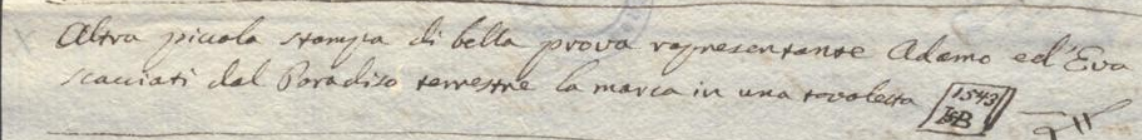 Altra piccola stampa di bella prova rapresentante Adamo ed'Eva
scacciati dal Paradiso terrestre la marca in una tavoletta 1543
ISB